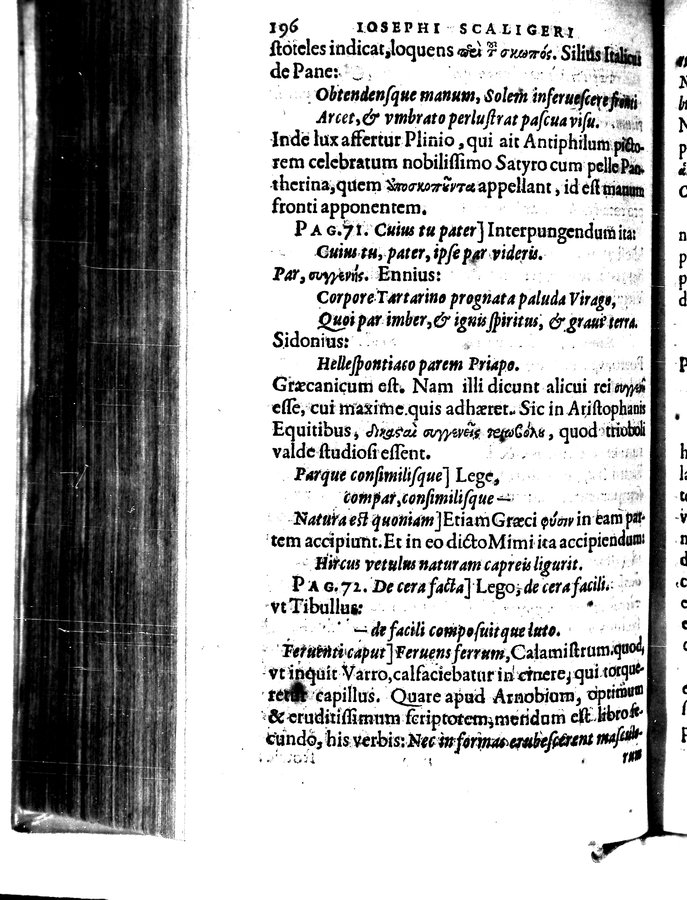 196 IOSEPHI SCALIGERI
ſtoteles indicat, loquens σκωπός. Silius Italicus
de Pane:
Obtendenſque manum, Solem inferueſcere fronti
Arcet, & vmbrato perluſtrat paſcua viſu.
Inde lux affertur Plinio, qui ait Antiphilum picto-
rem celebratum nobiliſſimo Satyro cum pelle Pan-
therina, quem appellant, id eſt manum
fronti apponentem.
PAG. 71. Cuius tu pater] Interpungendum ita:
Cuius tu, pater, ipſe par videris.
Par, συγγενής. Ennius:
Corpore Tartarino prognata paluda Virago,
Quoi par imber, & ignis ſpiritus, & graue terra.
Sidonius:
Helleſpontiaco parem Priapo.
Græcanicum eſt. Nam illi dicunt alicui rei
eſſe, cui maxime quis adhæret. Sic in Ariſtophanis
Equitibus, συγγενεῖς quod trioboli
valde ſtudioſi eſſent.
Parque conſimiliſque] Lege,
compar, conſimiliſque —
Natura eſt quoniam] Etiam Græci φύσιν in eam par-
tem accipiunt. Et in eo dicto Mimi ita accipiendum:
Hircus vetulus naturam capreis ligurit.
PAG. 72. De cera facta] Lego, de cera facili.
vt Tibullus:
— de facili compoſuitque luto.
Feruenti caput] Feruens ferrum, Calamiſtrum. quod,
vt inquit Varro, calfaciebatur in cinere, qui torque-
retur capillus. Quare apud Arnobium, optimum
& eruditiſſimum ſcriptorem, mendum eſt libro ſe-
cundo, his verbis: Nec in formas erubeſcerent maſculo-
rum